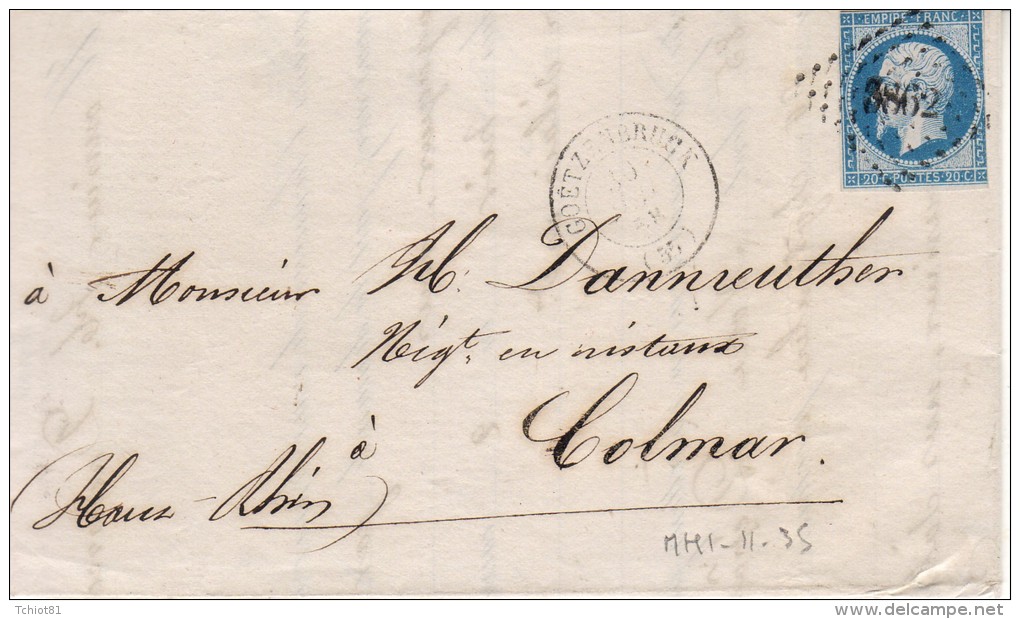 EMPIRE FRANC
3862
20 C. POSTES 20 C.
GOËTZENBRUCK
(55)
à Monsieur H. Dannreuther
Négt. en cristaux
à Colmar.
(Haut-Rhin)
Tchiot81
delcampe.net